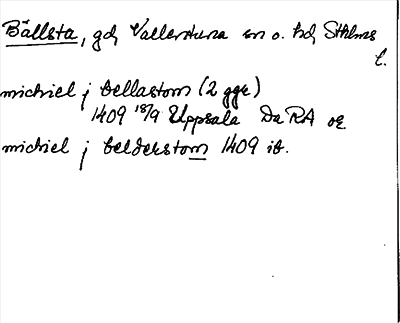 Bällsta, gd, Vallentuna sn o. hd, Sthlms
l.
michiel j bellastom (2 ggr)
1409 18/9 Uppsala Da RA or
michiel j belderstom 1409 ib.